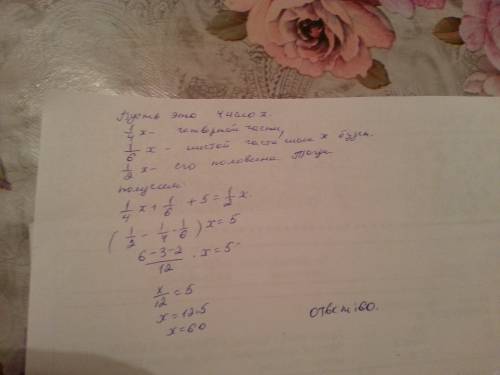 Пусть это число x.
1/4 x - четвертой части,
1/6 x - шестой части числа x будет
1/2 x - его половина Тогда
получаем:
1/4 x + 1/6 + 5 = 1/2 x.
(1/2 - 1/4 - 1/6) x = 5
6-3-2/12 · x = 5
x/12 = 5
x = 12·5
x = 60
ответ: 60.